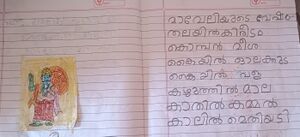 മാവേലിയുടെ വേഷം
തലയിൽ കിരീടം
കൊമ്പൻ മീശ
കൈയ്യിൽ ഓലക്കുട
കൈയിൽ വള
കഴുത്തിൽ മാല
കാതിൽ കമ്മൽ
കാലിൽ മെതിയടി